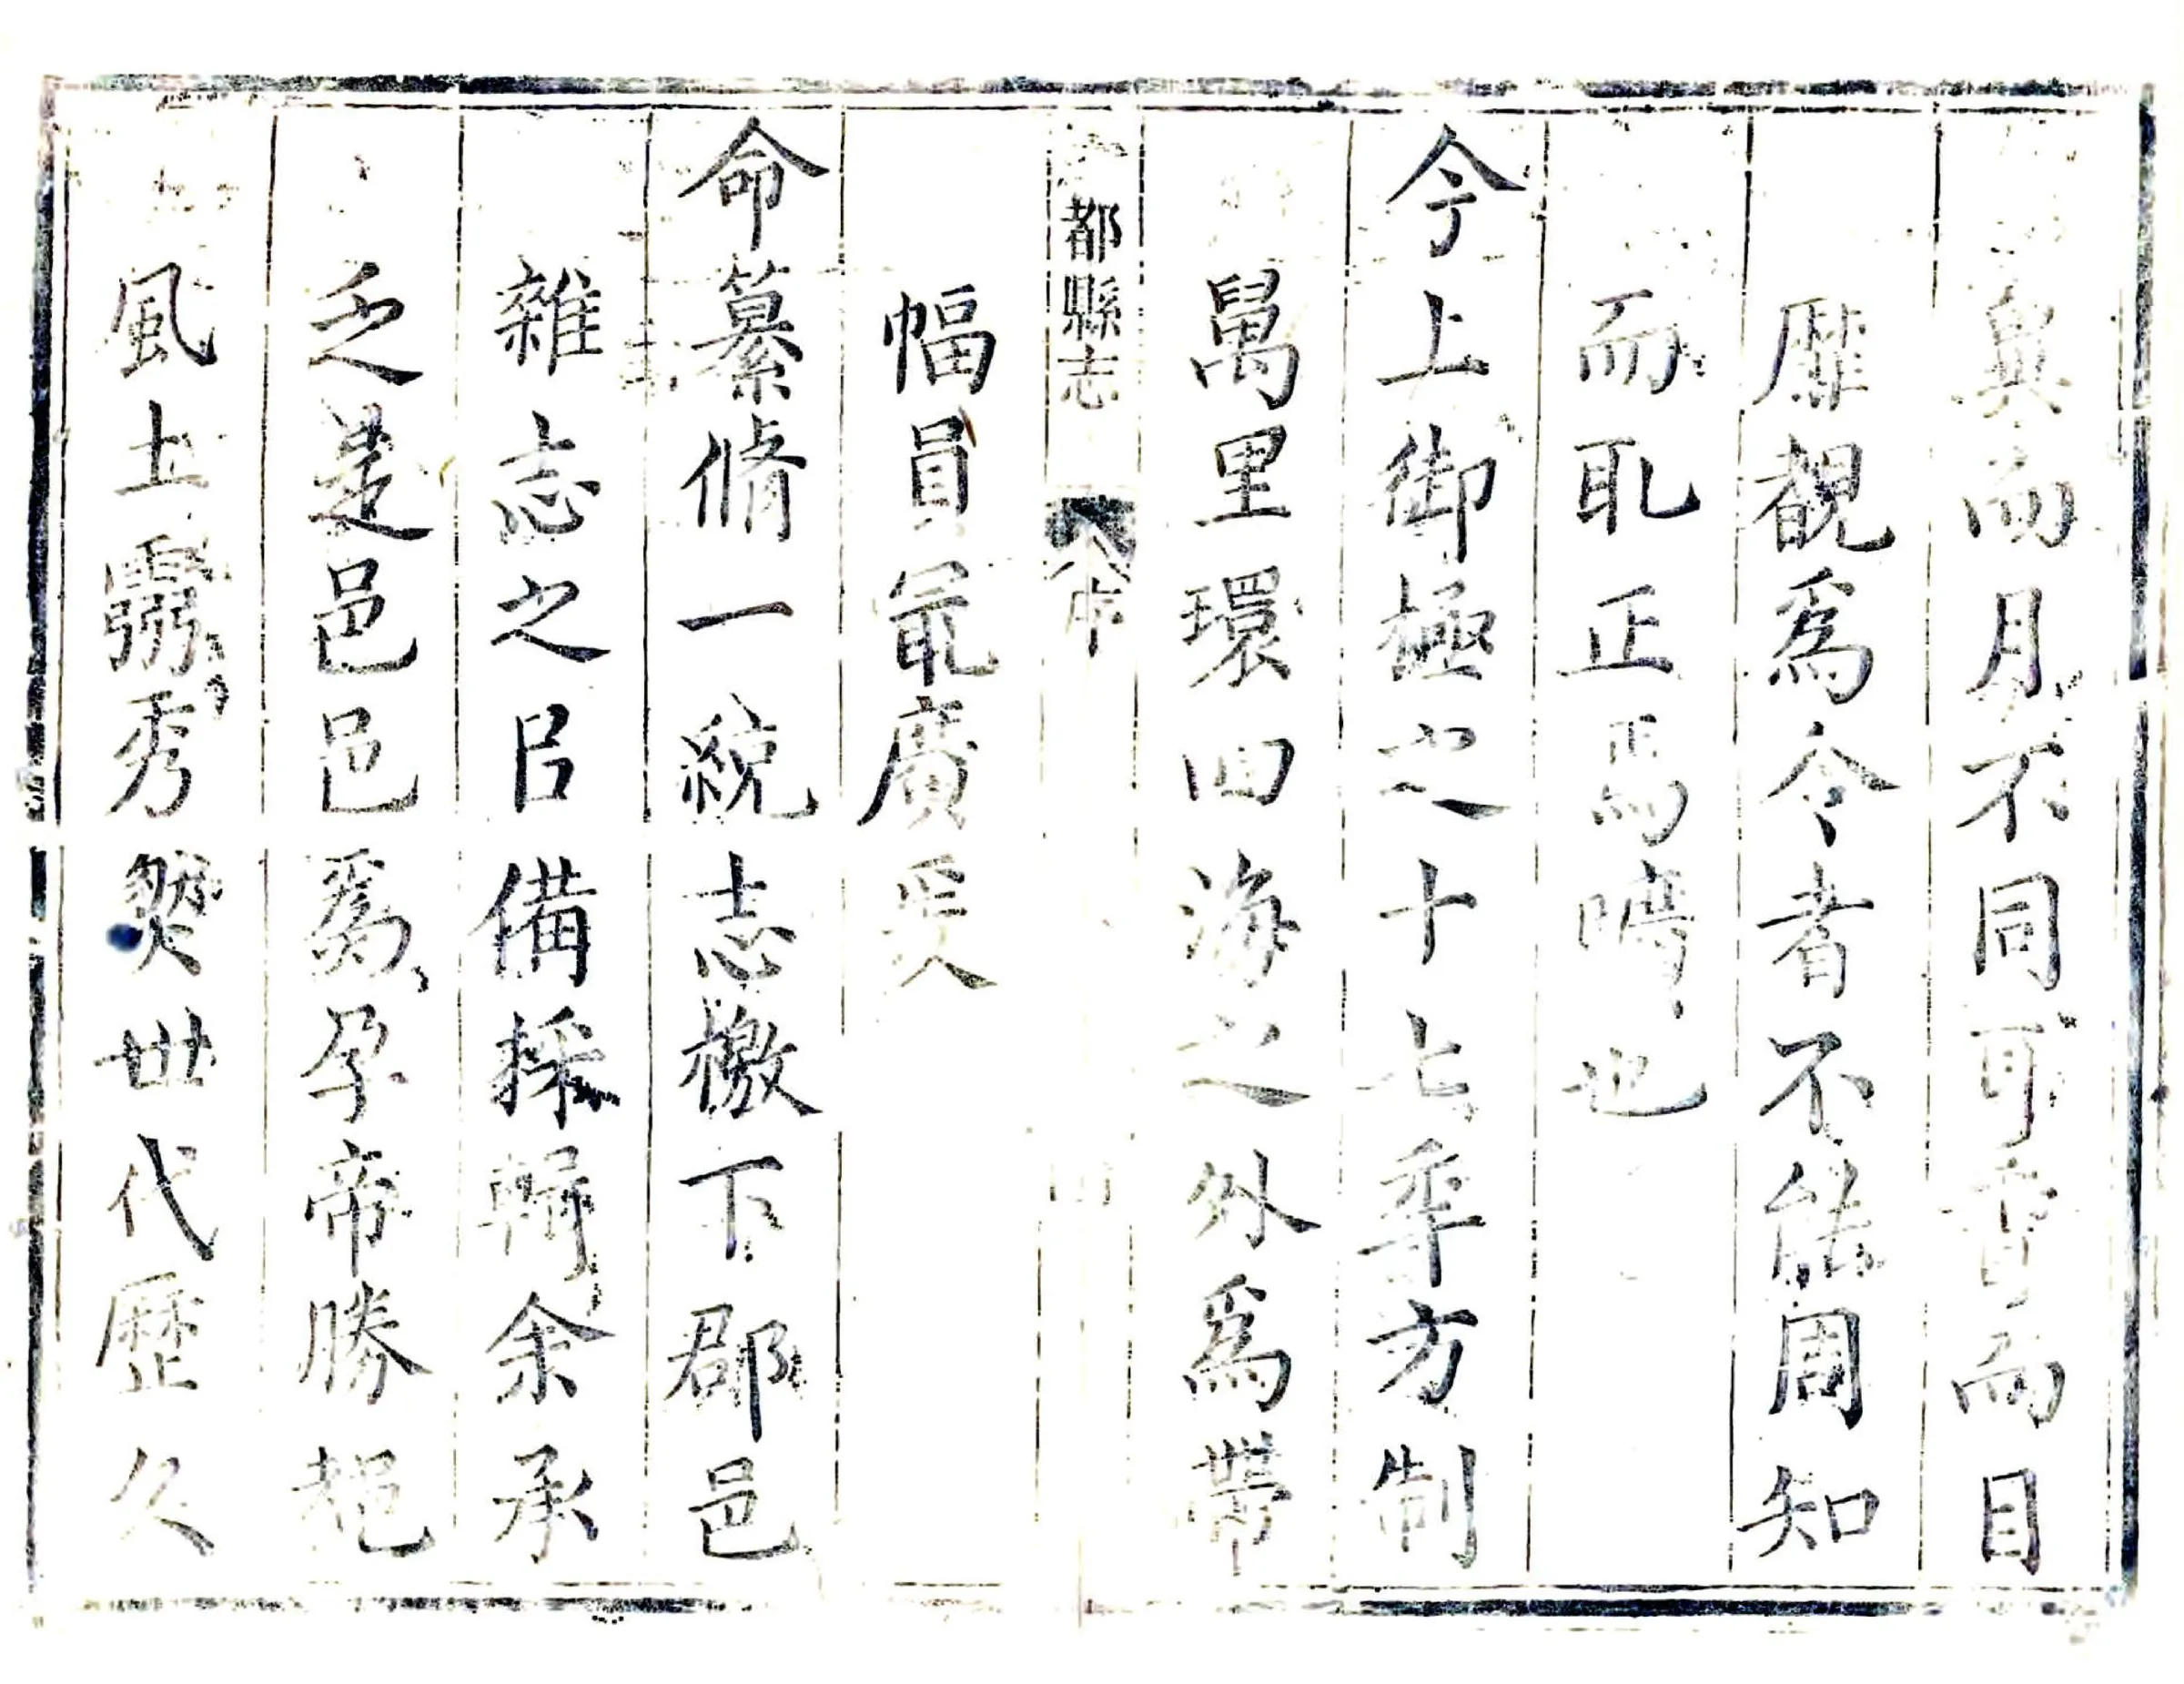 異而月不同耳㫖而目
靡覩爲令者不能周知
而耴正焉
也
今上御極之十七年方制
萬里環四海之外爲帶
都縣志
序
幅員最廣爰
命纂脩一統志檄下郡邑
雜志之㠯備採輯余承
乏是邑邑爲孕帝勝
風土靈秀奕世代歷久